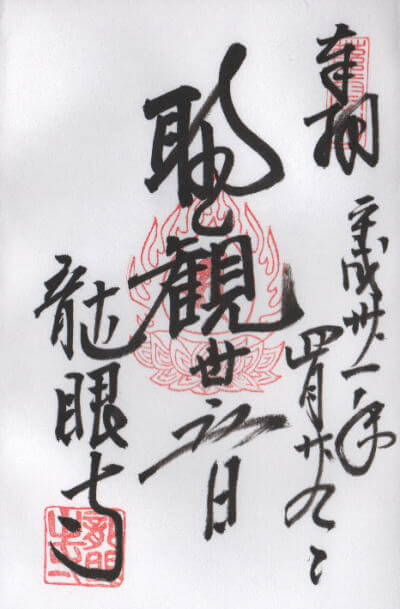 奉拝
平成卅一年
四月廿九日
聖観世音
龍眼寺